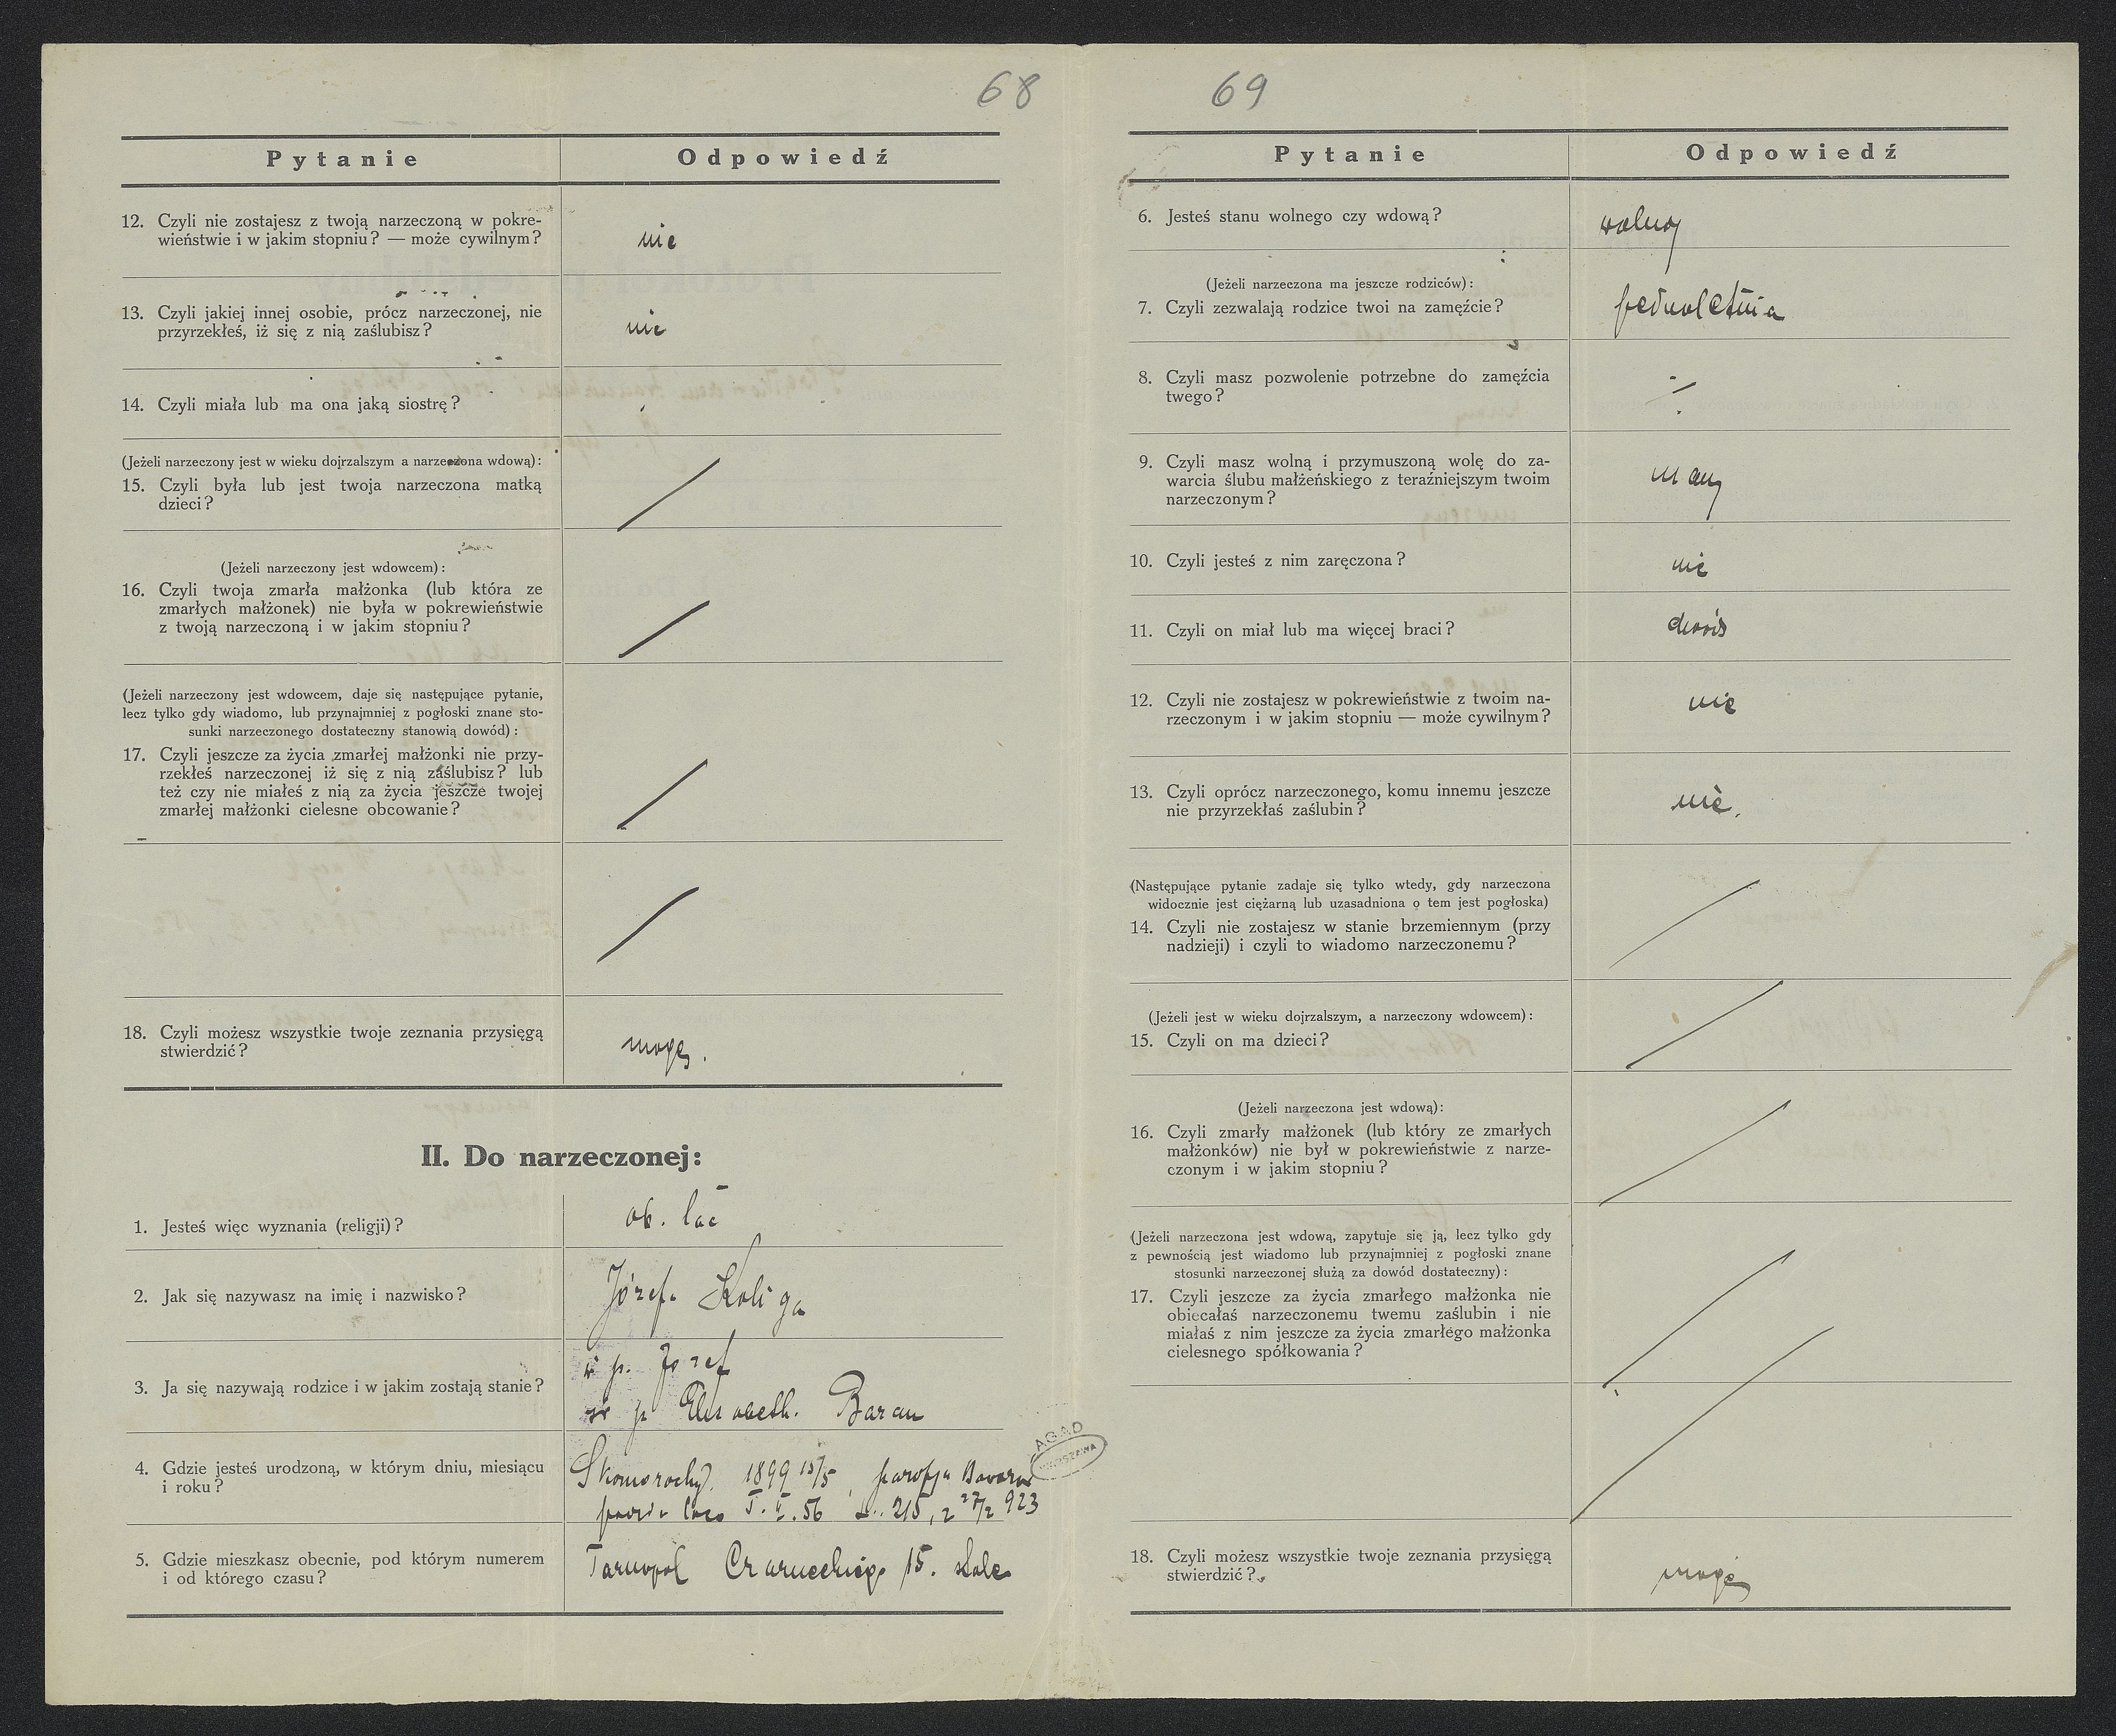 68
Pytanie Odpowiedź
12. Czyli nie zostajesz z twoją narzeczoną w pokre-
wieństwie i w jakim stopniu? — może cywilnym?
nie
13. Czyli jakiej innej osobie, prócz narzeczonej, nie
przyrzekłeś, iż się z nią zaślubisz?
nie
14. Czyli miała lub ma ona jaką siostrę?
(Jeżeli narzeczony jest w wieku dojrzalszym a narzeczona wdową):
15. Czyli była lub jest twoja narzeczona matką
dzieci?
(Jeżeli narzeczony jest wdowcem):
16. Czyli twoja zmarła małżonka (lub która ze
zmarłych małżonek) nie była w pokrewieństwie
z twoją narzeczoną i w jakim stopniu?
(Jeżeli narzeczony jest wdowcem, daje się następujące pytanie,
lecz tylko gdy wiadomo, lub przynajmniej z pogłoski znane sto-
sunki narzeczonego dostateczny stanowią dowód):
17. Czyli jeszcze za życia zmarłej małżonki nie przy-
rzekłeś narzeczonej iż się z nią zaślubisz? lub
też czy nie miałeś z nią za życia jeszcze twojej
zmarłej małżonki cielesne obcowanie?
18. Czyli możesz wszystkie twoje zeznania przysięgą
stwierdzić?
mogę.
II. Do narzeczonej:
1. Jesteś więc wyznania (religji)?
ob. łac
2. Jak się nazywasz na imię i nazwisko?
Józefa Koliga
3. Ja się nazywają rodzice i w jakim zostają stanie?
ś p. Józef
ś p Elisabeth. Baran
4. Gdzie jesteś urodzoną, w którym dniu, miesiącu
i roku?
Skomorochy. 1899 15/5, parafja
T. V. 56 215, z 27/2 923
5. Gdzie mieszkasz obecnie, pod którym numerem
i od którego czasu?
Tarnopol Czarneckiego 15. stale
AGAD
WARSZAWA
69
Pytanie Odpowiedź
6. Jesteś stanu wolnego czy wdową?
wolną
(Jeżeli narzeczona ma jeszcze rodziców):
7. Czyli zezwalają rodzice twoi na zamęźcie?
pełnoletnia
8. Czyli masz pozwolenie potrzebne do zamęźcia
twego?
9. Czyli masz wolną i przymuszoną wolę do za-
warcia ślubu małżeńskiego z teraźniejszym twoim
narzeczonym?
mam
10. Czyli jesteś z nim zaręczona?
nie
11. Czyli on miał lub ma więcej braci?
12. Czyli nie zostajesz w pokrewieństwie z twoim na-
rzeczonym i w jakim stopniu — może cywilnym?
nie
13. Czyli oprócz narzeczonego, komu innemu jeszcze
nie przyrzekłaś zaślubin?
nie.
(Następujące pytanie zadaje się tylko wtedy, gdy narzeczona
widocznie jest ciężarną lub uzasadniona o tem jest pogłoska)
14. Czyli nie zostajesz w stanie brzemiennym (przy
nadzieji) i czyli to wiadomo narzeczonemu?
(Jeżeli jest w wieku dojrzalszym, a narzeczony wdowcem):
15. Czyli on ma dzieci?
(Jeżeli narzeczona jest wdową):
16. Czyli zmarły małżonek (lub który ze zmarłych
małżonków) nie był w pokrewieństwie z narze-
czonym i w jakim stopniu?
(Jeżeli narzeczona jest wdową, zapytuje się ją, lecz tylko gdy
z pewnością jest wiadomo lub przynajmniej z pogłoski znane
stosunki narzeczonej służą za dowód dostateczny):
17. Czyli jeszcze za życia zmarłego małżonka nie
obiecałaś narzeczonemu twemu zaślubin i nie
miałaś z nim jeszcze za życia zmarłego małżonka
cielesnego spółkowania?
18. Czyli możesz wszystkie twoje zeznania przysięgą
stwierdzić?
mogę